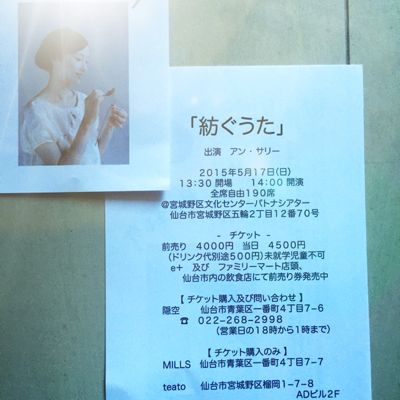 「紡ぐうた」
出演 アン・サリー
2015年5月17日(日)
13:30 開場 14:00 開演
全席自由190席
@宮城野区文化センターパトナシアター
仙台市宮城野区五輪2丁目12番70号
- チケット -
前売り 4000円 当日 4500円
(ドリンク代別途500円)未就学児童不可
e+ 及び ファミリーマート店頭、
仙台市内の飲食店にて前売り券発売中
【 チケット購入及び問い合わせ 】
隠空 仙台市青葉区一番町4丁目7-6
☎ 022-268-2998
(営業日の18時から1時まで)
【 チケット購入のみ 】
MILLS 仙台市青葉区一番町4丁目7-7
teato 仙台市宮城野区榴岡1-7-8
ADビル2F